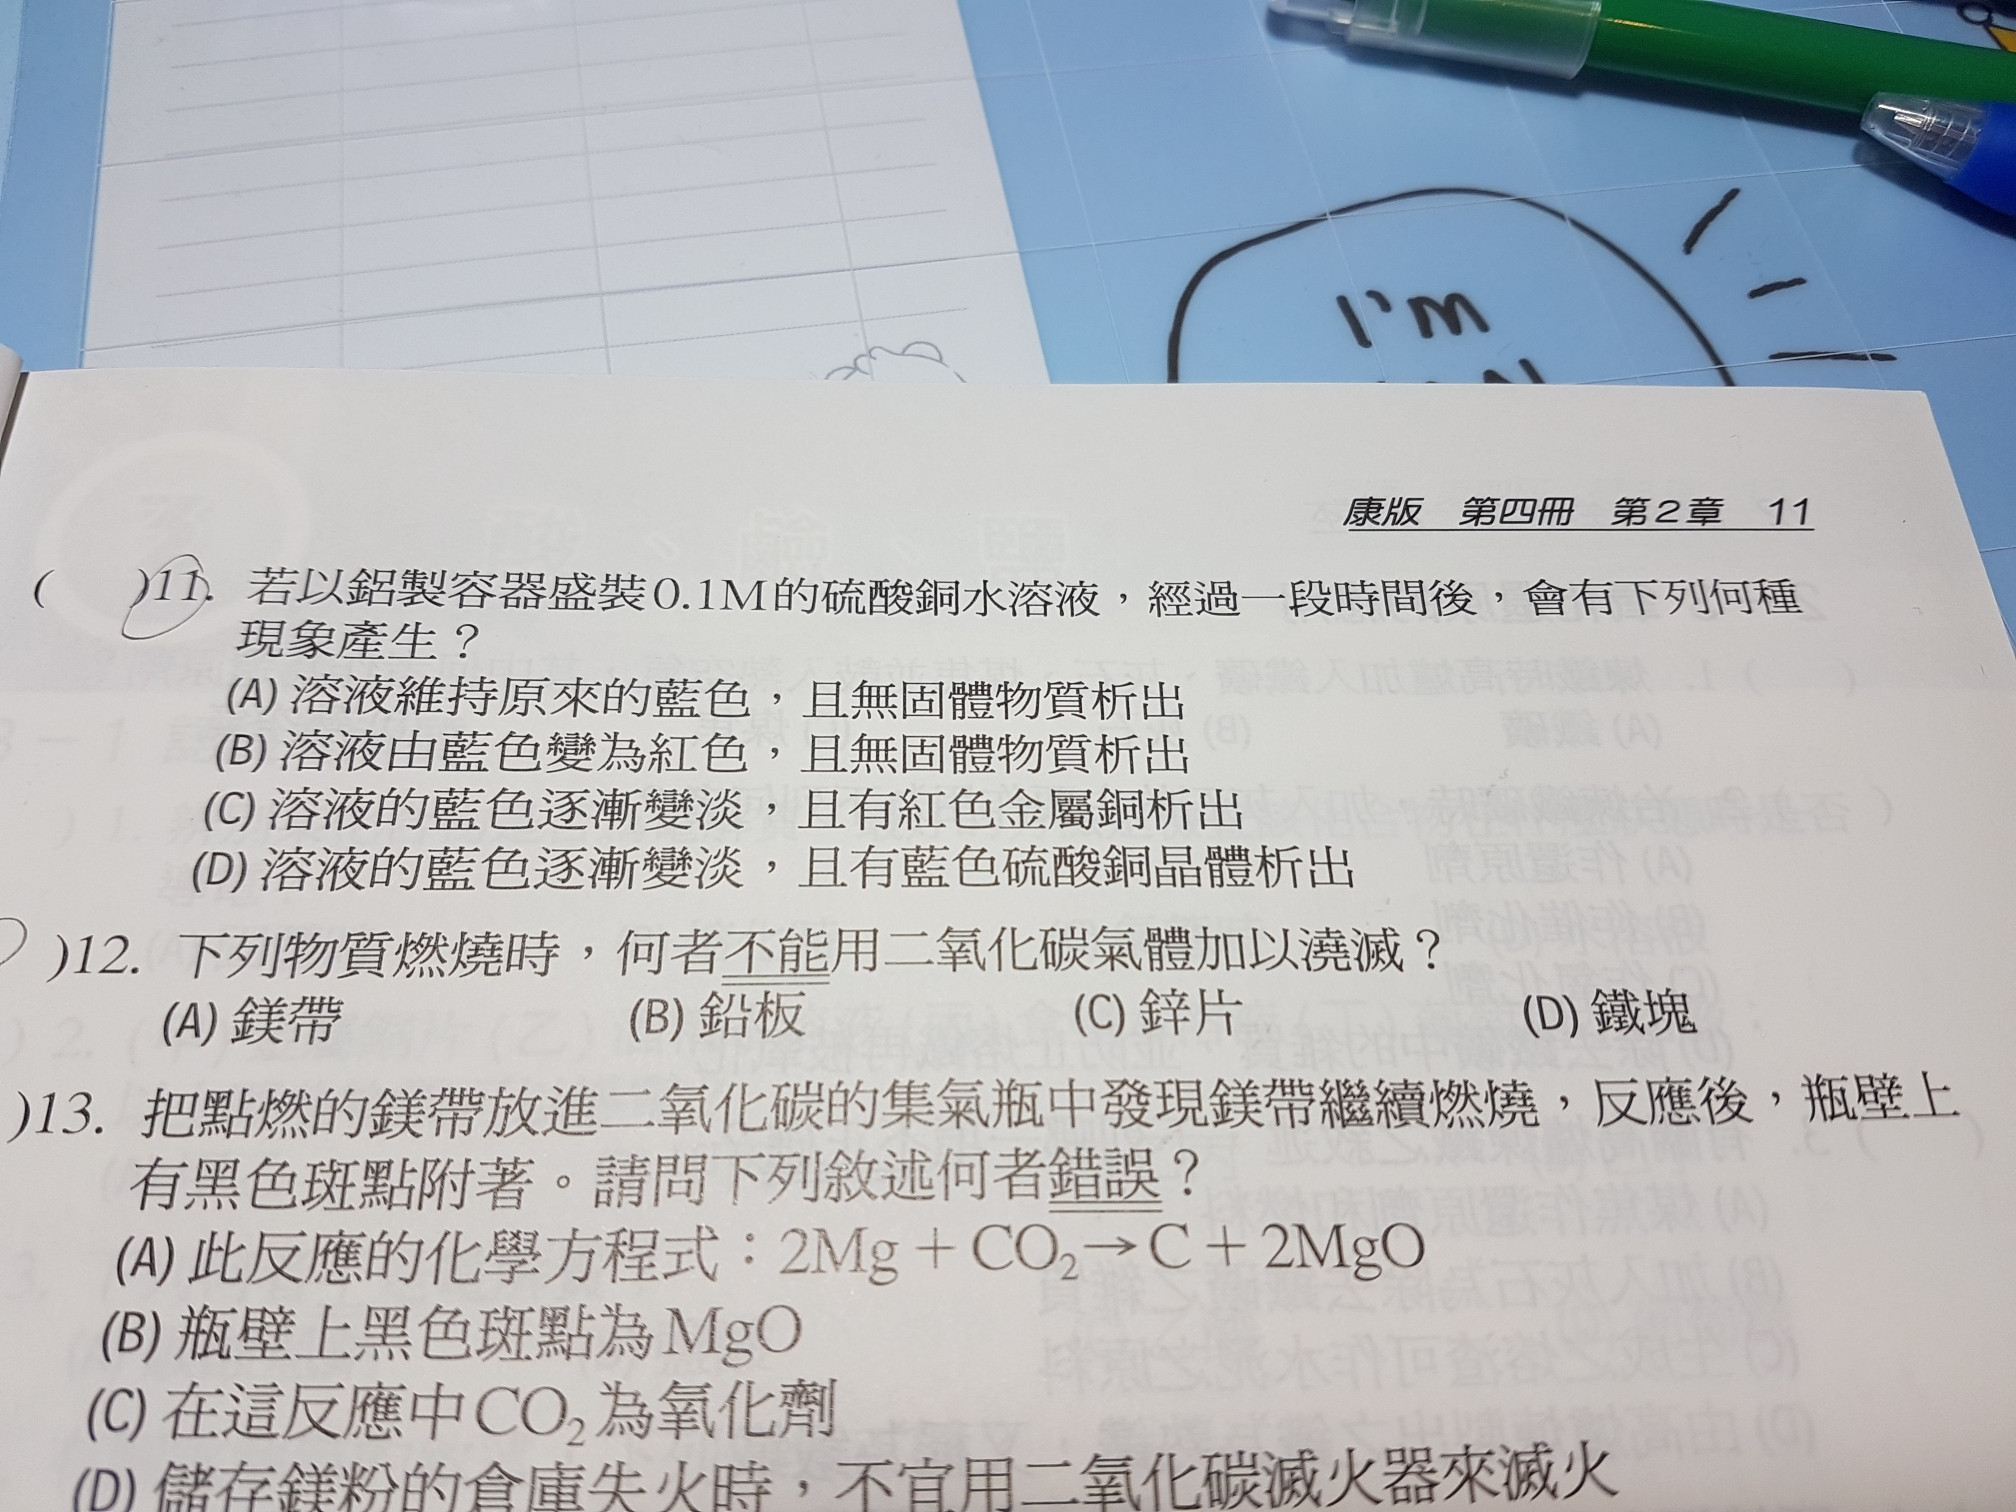 I'm
康版 第四冊 第2章 11
( )11. 若以鋁製容器盛裝0.1M的硫酸銅水溶液，經過一段時間後，會有下列何種
現象產生？
(A) 溶液維持原來的藍色，且無固體物質析出
(B) 溶液由藍色變為紅色，且無固體物質析出
(C) 溶液的藍色逐漸變淡，且有紅色金屬銅析出
(D) 溶液的藍色逐漸變淡，且有藍色硫酸銅晶體析出
)12. 下列物質燃燒時，何者不能用二氧化碳氣體加以澆滅？
(A) 鎂帶 (B) 鉛板 (C) 鋅片 (D) 鐵塊
)13. 把點燃的鎂帶放進二氧化碳的集氣瓶中發現鎂帶繼續燃燒，反應後，瓶壁上
有黑色斑點附著。請問下列敘述何者錯誤？
(A) 此反應的化學方程式：2Mg＋CO₂→C＋2MgO
(B) 瓶壁上黑色斑點為MgO
(C) 在這反應中CO₂為氧化劑
(D) 儲存鎂粉的倉庫失火時，不宜用二氧化碳滅火器來滅火